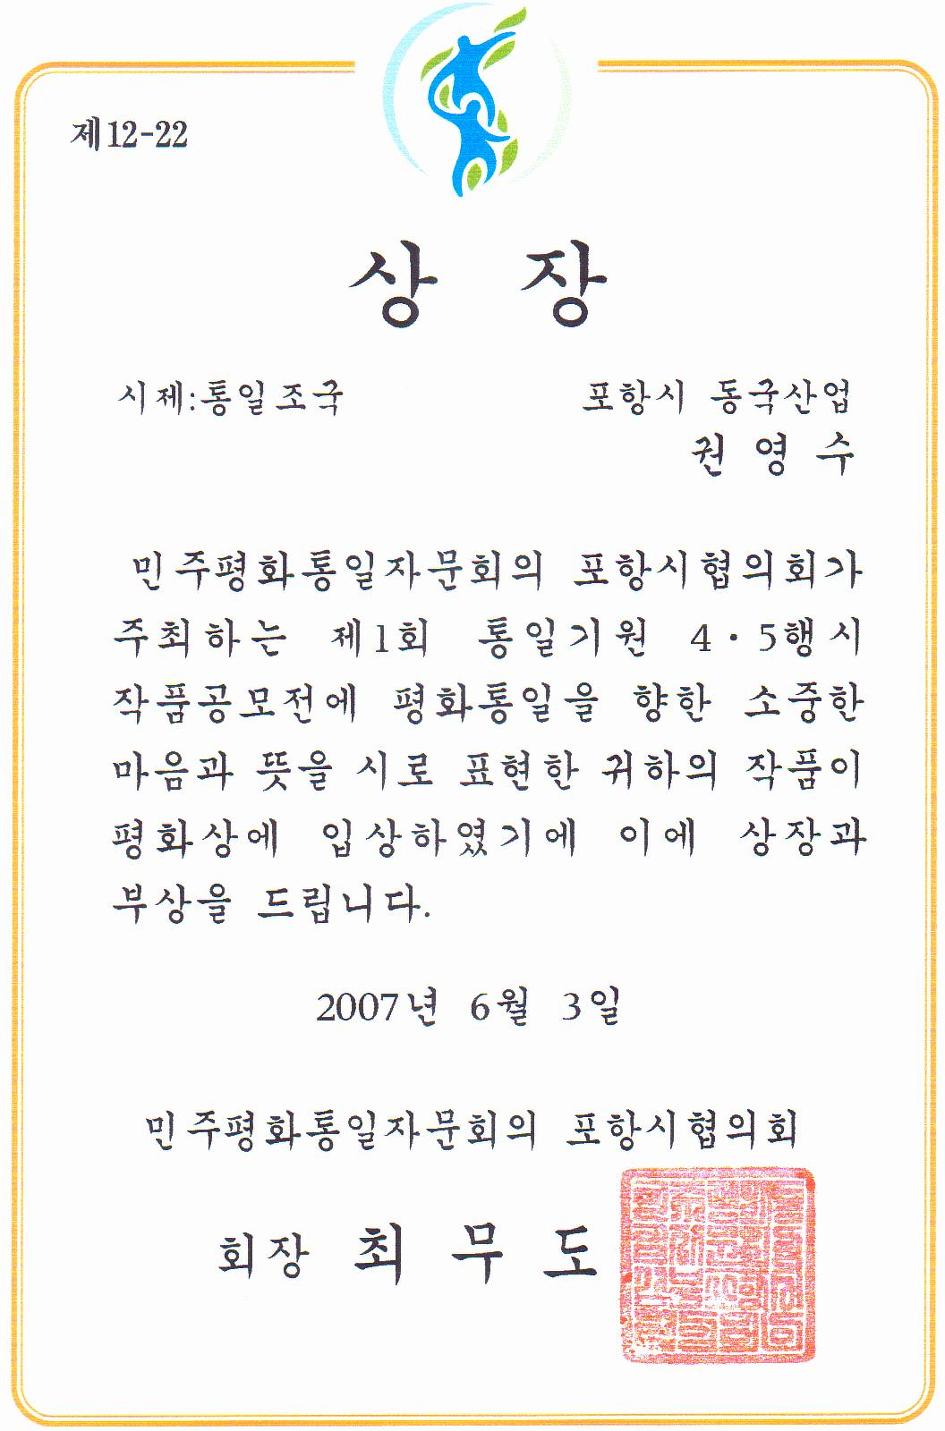 제12-22
상 장
시제:통일조국 포항시 동국산업
권 영 수
민주평화통일자문회의 포항시협의회가
주최하는 제1회 통일기원 4·5행시
작품공모전에 평화통일을 향한 소중한
마음과 뜻을 시로 표현한 귀하의 작품이
평화상에 입상하였기에 이에 상장과
부상을 드립니다.
2007년 6월 3일
민주평화통일자문회의 포항시협의회
회장 최 무 도